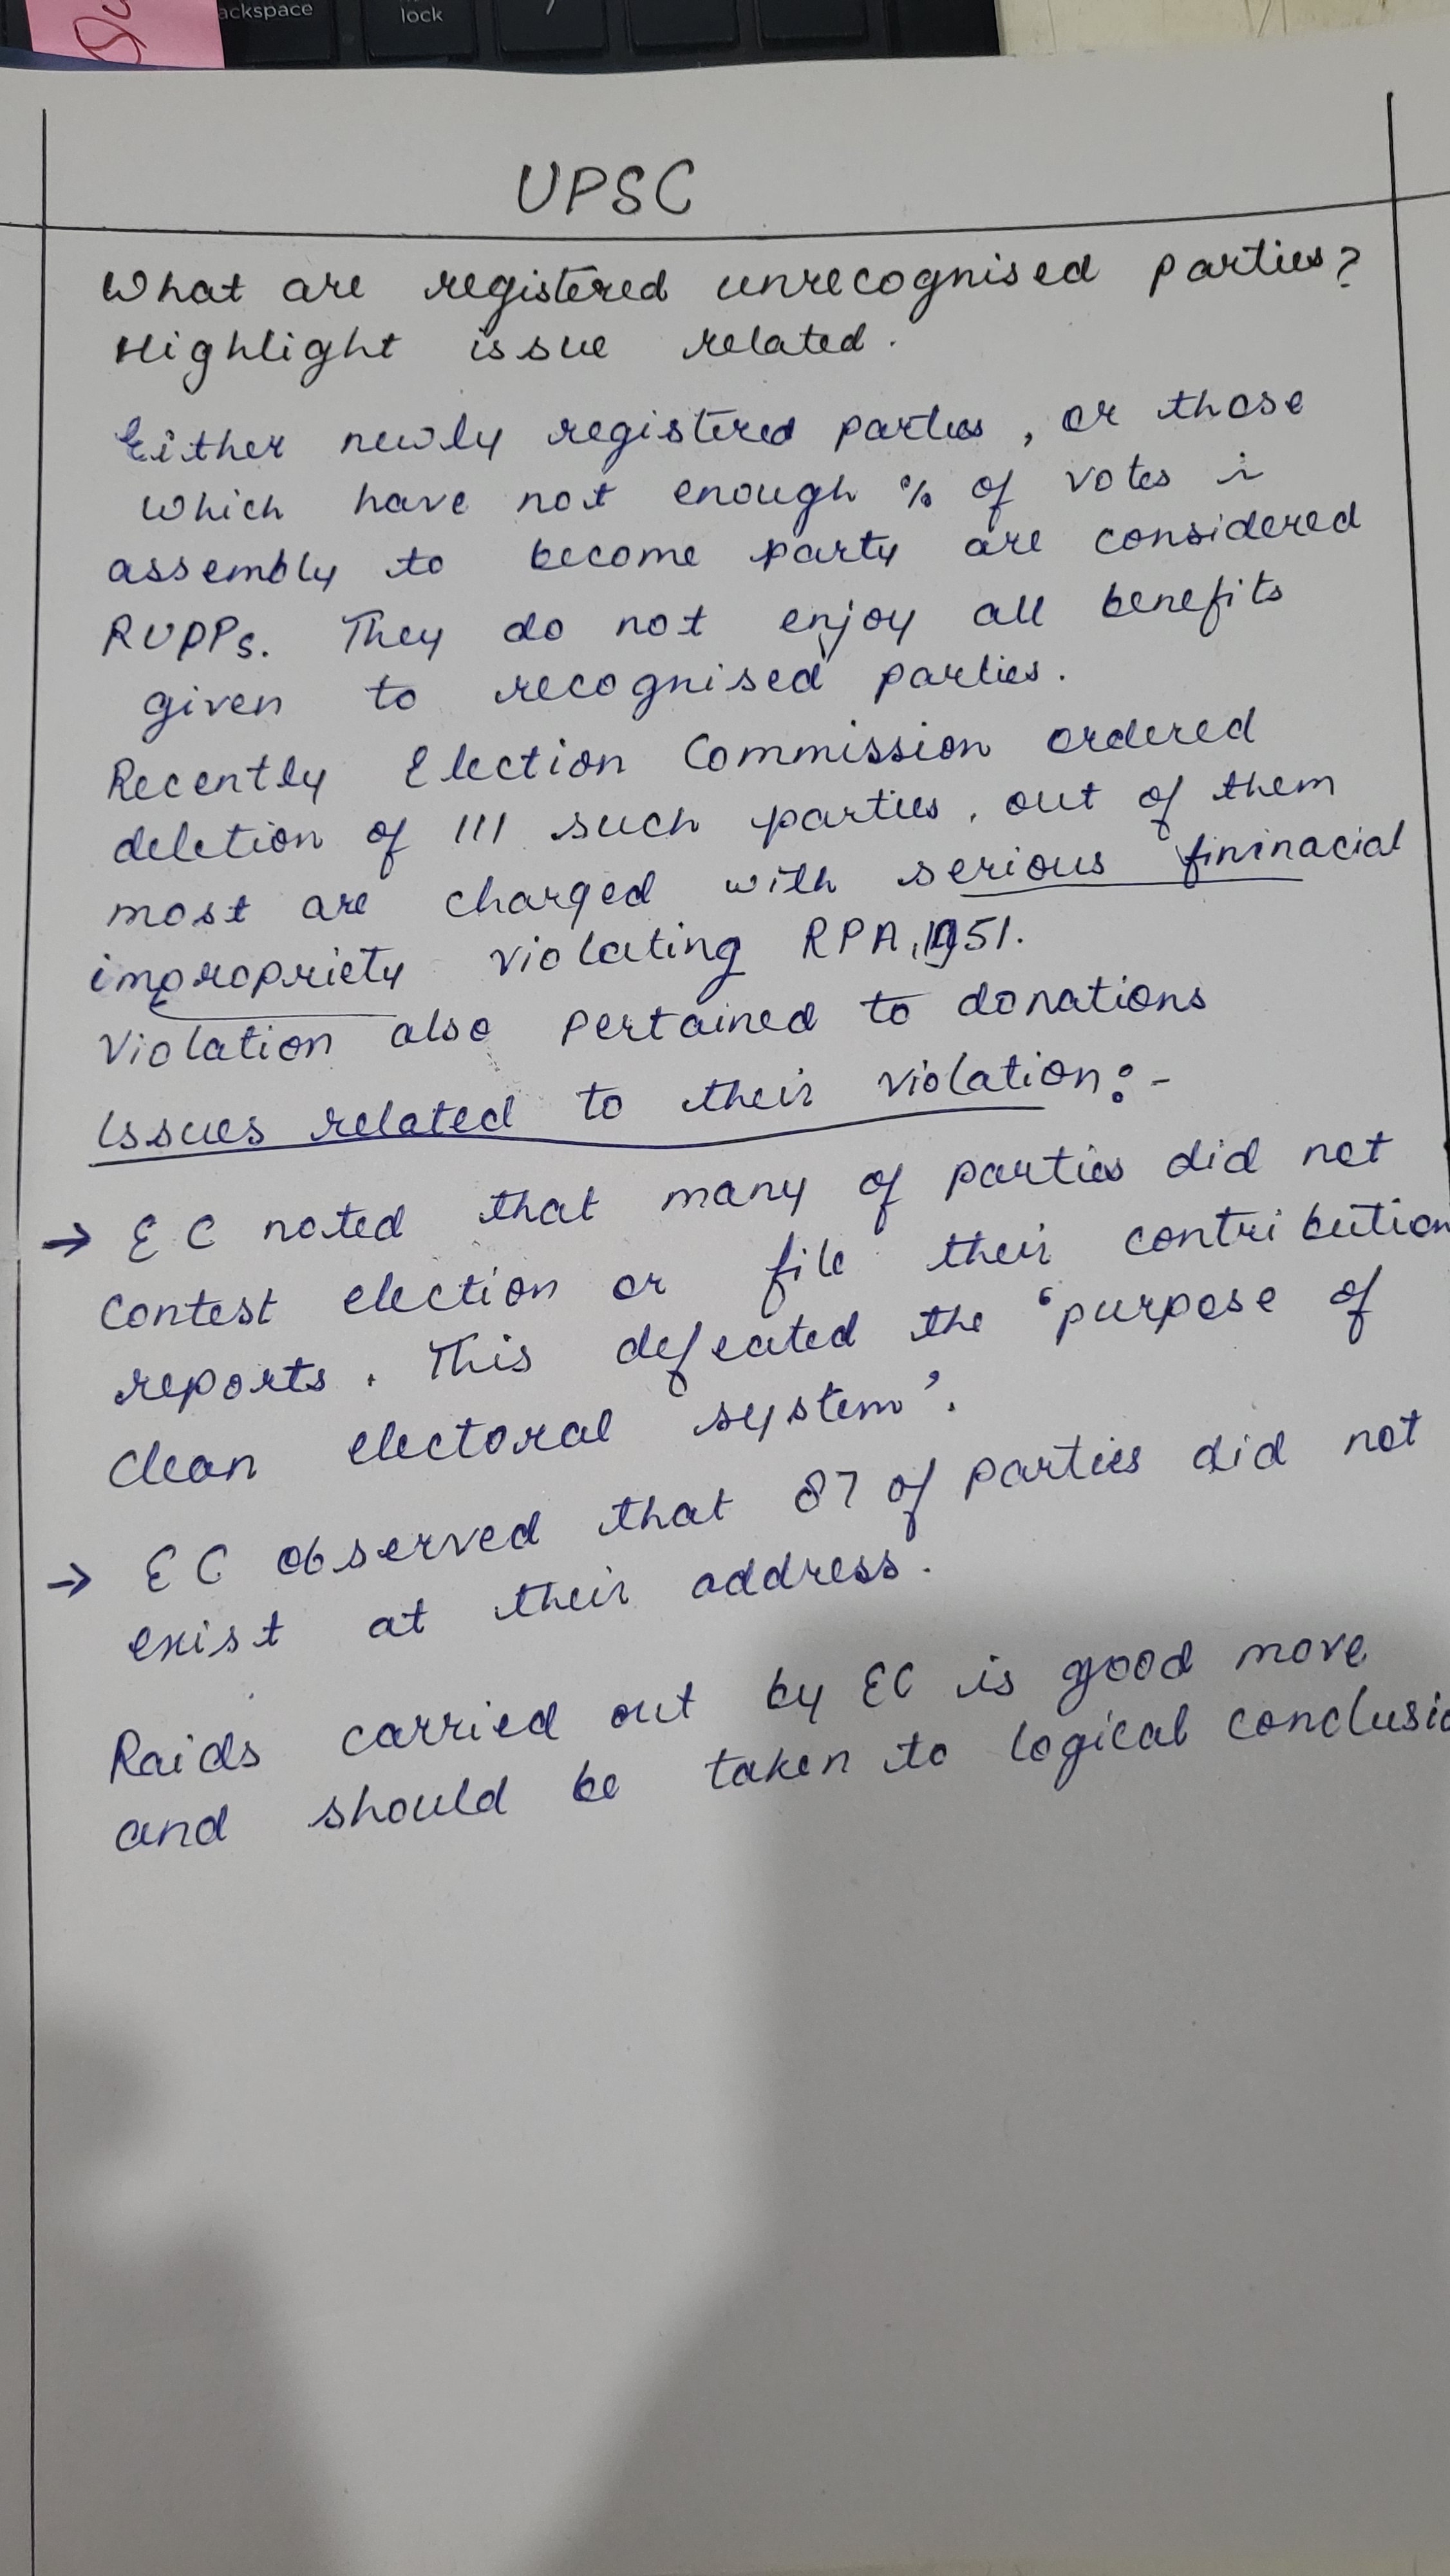 ackspace
lock
UPSC
What are registered unrecognised parties?
Highlight issue related.
Either newly registered parties, or those
which have not enough % of votes in
assembly to become party are considered
RUPPs. They do not enjoy all benefits
given to recognised parties.
Recently Election Commission ordered
deletion of 111 such parties, out of them
most are charged with serious fininacial
impropriety violating RPA, 1951.
Violation also pertained to donations
Issues related to their violation:-
→ EC noted that many of parties did not
contest election or file their contribution
reports. This defeated the 'purpose of
clean electoral system'.
→ EC observed that 87 of parties did not
exist at their address.
Raids carried out by EC is good move
and should be taken to logical conclusio